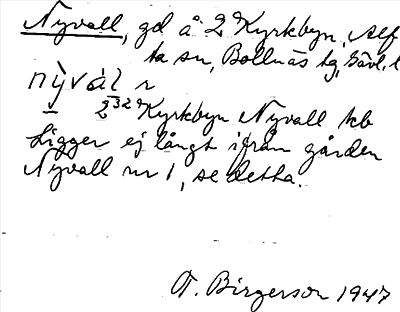 Nyvall, gd å 2⁹ Kyrkbyn, Alf
ta sn, Bollnäs tg, Gävl. l
nỳvál r
2³²⁹ Kyrkbyn Nyvall tcb
Ligger ej långt ifrån gården
Nyvall nr 1, se detta.
T. Birgerson 1947